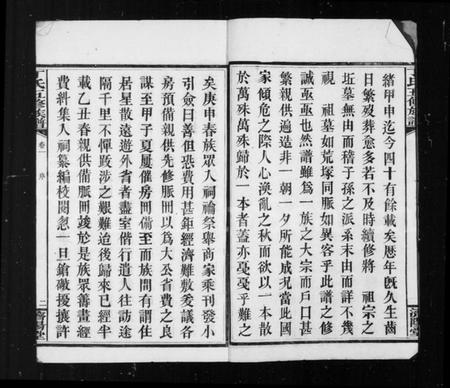 緒甲申迄今四十有餘載矣歷年旣久生齒
日繁歿葬愈多若不及時續修將　祖宗之
坵墓無由而稽子孫之派系末由而詳不幾
視　祖墓如荒塚同脈如異客乎此譜之修
誠亟亟也然譜雖爲一族之大宗而戶口甚
繁親供遍造非一朝一夕所能成况當此國
家傾危之際人心渙亂之秋而欲以一本散
於萬殊萬殊歸於一本者蓋亦戞戞乎難之
矣庚申春族眾入祠論祭舉商家乘刊發小
引僉曰善但恐費用甚鉅經濟難敷爰議各
房預備親供先修脈冊以爲大公省費之良
謀至甲子夏屢催房冊備至而族間有謂住
居星散遠遊外省者盡室偕行遣人往訪途
隔千里不憚跋涉之艱難迨後歸來已經半
載乙丑春親供備脈冊竣於是族眾善畫經
費糾集人祠纂編校閱忽一旦鎗礮擾攘許
氏五修族譜
卷一　序
二
濟陽堂